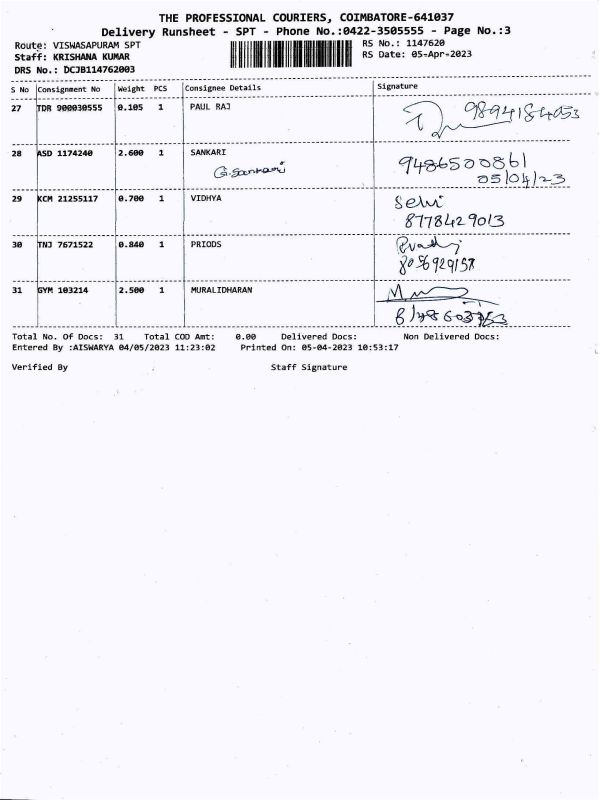 THE PROFESSIONAL COURIERS, COIMBATORE-641037
Delivery Runsheet - SPT - Phone No.:0422-3505555 - Page No.:3
Route: VISWASAPURAM SPT
RS No.: 1147620
Staff: KRISHANA KUMAR
RS Date: 05-Apr-2023
DRS No.: DCJB114762003
S No Consignment No Weight PCS Consignee Details Signature
27 TDR 900030555 0.105 1 PAUL RAJ
9894184053
28 ASD 1174240 2.600 1 SANKARI
9486500861
G.Sankari
05/04/23
29 KCM 21255117 0.700 1 VIDHYA
Selvi
8778429013
30 TNJ 7671522 0.840 1 PRIODS
31 GYM 103214 2.500 1 MURALIDHARAN
Total No. Of Docs: 31 Total COD Amt: 0.00 Delivered Docs: Non Delivered Docs:
Entered By :AISWARYA 04/05/2023 11:23:02 Printed On: 05-04-2023 10:53:17
Verified By Staff Signature